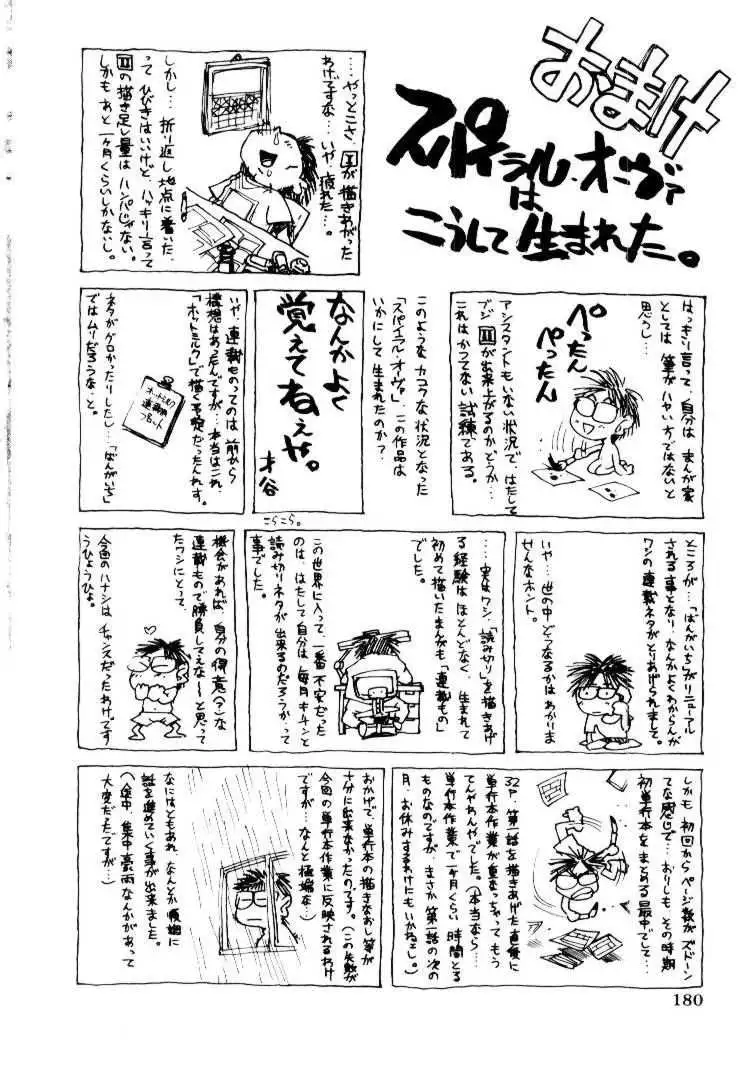 おまけ
スパイラル・オーヴァ
は
こうして生まれた。
……やっとこさ、Ⅰが描きあがった
わけですな…いや、疲れた…。
しかし… 折り返し地点に着いた、
って ひびきはいいけど、ハッキリ言って
Ⅱの描き足し量はハンパじゃない。
しかも あと一ヶ月くらいしかないし。
はっきり言って、自分は まんが家
としては 筆が ハヤい方ではないと
思うし…
ぺったん
ぺったん
アシスタントもいない状況で、はたして
ブジⅡが出来上がるのかどうか…
これは かつてない試練である。
このような カコクな状況となった
「スパイラル・オーヴァ」、この作品は
いかにして生まれたのか？
なんかよく
覚えてねぇや。
才谷
こらこら。
いや、連載ものってのは 前から
構想はあったんですが…本当はこれ、
「ホットミルク」で描く予定だったんれす。
ホットミルク
連載用
プロット
ネタがゲロかったりしたし…「ばんがいち」
ではムリだろうな、と。
ところが…「ばんがいち」がリニューアル
される事となり、なんかよくわからんが
ワシの連載ネタがとりあげられました。
いや… 世の中どうなるかはわかりま
せんなホント。
……実はワシ、「読み切り」を描きあげ
る経験は ほとんどなく、生まれて
初めて描いたまんがも「連載もの」
でした。
この世界に入って、一番不安だった
のは、はたして自分は 毎月キチンと
読み切りネタが出来るのだろうかって
事でした。
機会があれば、自分の得意(？)な
連載もので勝負してえな〜と思って
たワシにとって、
今回のハナシは チャンスだったわけです
うひょうひょ。
しかも 初回からページ数が ズドーン
てな感じで… おりしも その時期
初単行本を まとめる 最中でして…
32P、第一話を描きあげた直後に
単行本作業が重なっちゃって もう
てんやわんやでした。(本当なら…
単行本作業で一ヶ月くらい 時間とる
ものなのですが、まさか 第一話の次の
月、お休みするわけにもいかねェし。)
おかげで、単行本の描きなおし等が
十分に出来なかったのです。(この失敗が
今回の単行本作業に反映されるわけ
ですが… なんと極端な…)
なにはともあれ なんとか 順調に
話を進めていく事が出来ました。
(途中、集中豪雨なんかがあって
大変だったですが…)
180